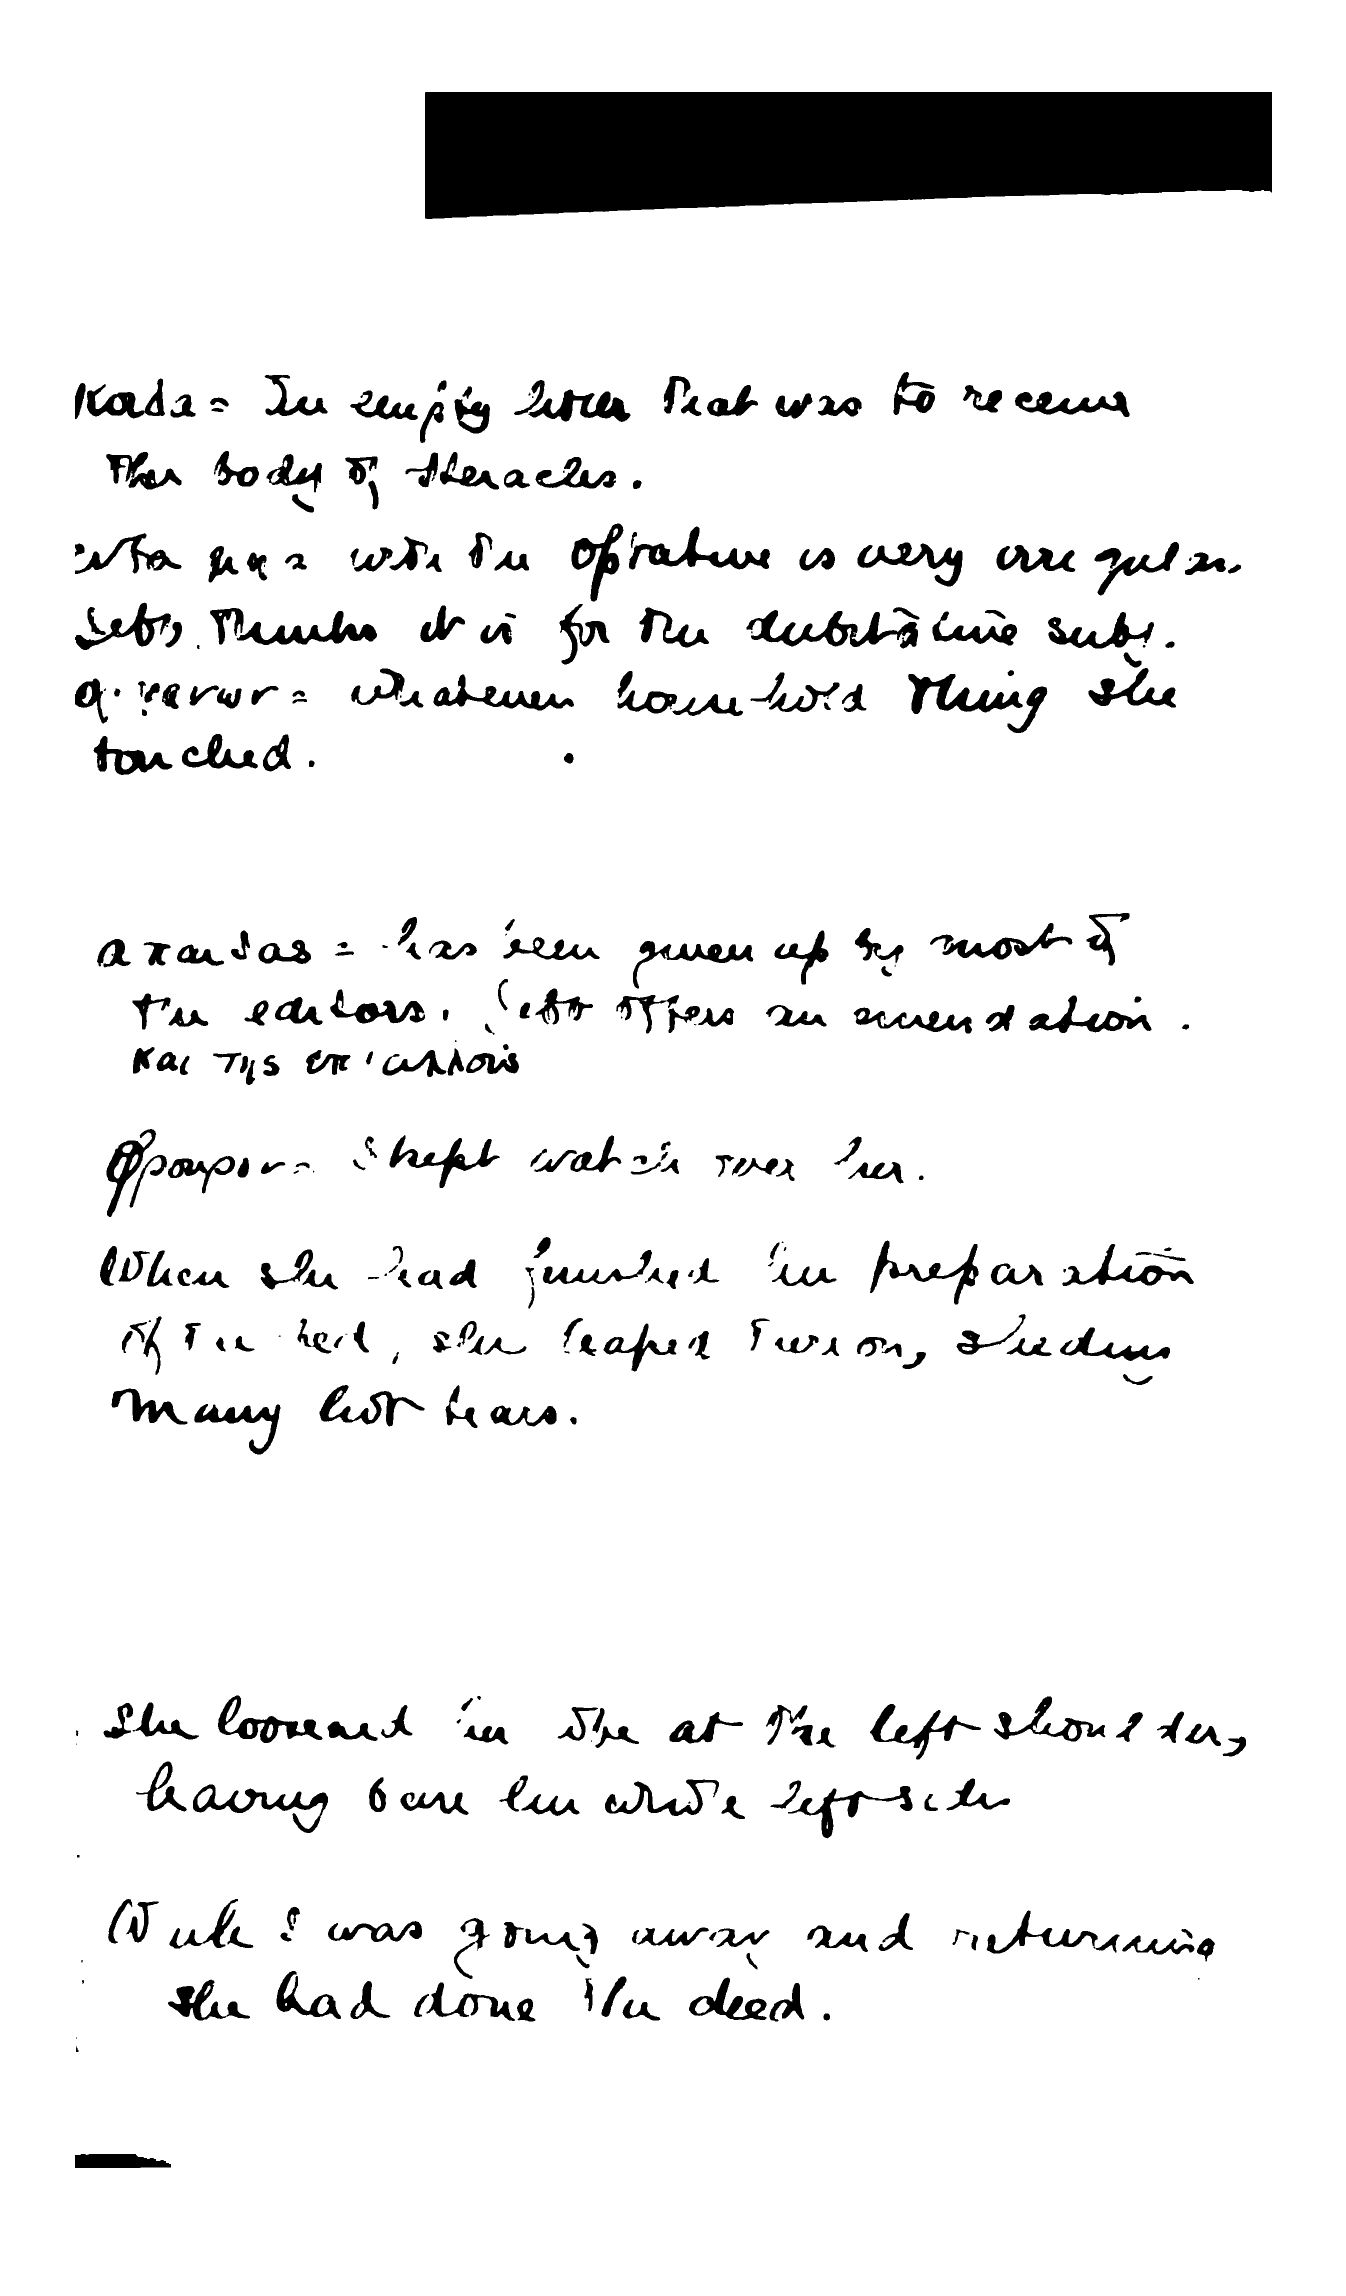 κοιλα = The empty litter that was to receive
the body of Heracles.
ἔνθα μη = with the optative is very irregular.
Jebb thinks it is for the deliberative subj.
ψαυων = whatever household thing she
touched.
απαιδας = has been given up by most of
the editors. Jebb offers an emendation.
και της επ' αλλοις
φρουρουν = I kept watch over her.
When she had finished the preparation
of the bed, she leaped thereon, shedding
many hot tears.
She loosened her robe at the left shoulder,
leaving bare her white left side
While I was going away and returning
she had done the deed.